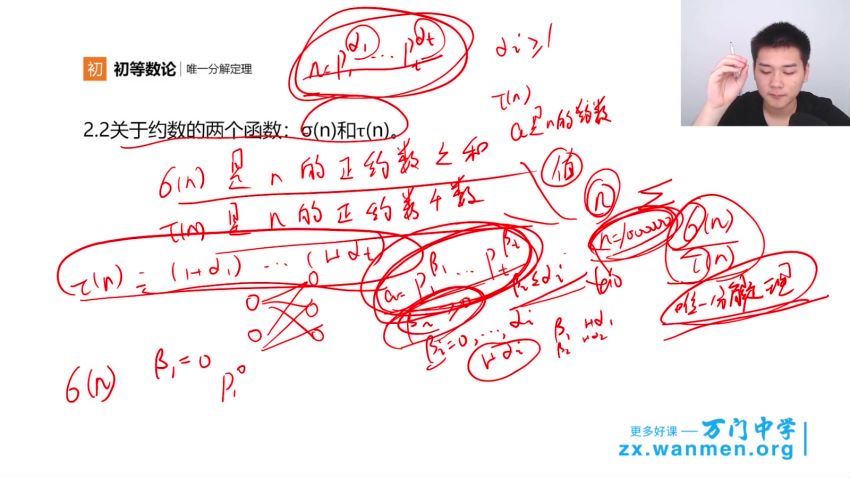 初 初等数论 | 唯一分解定理
n=p₁^α₁ … pₜ^αₜ
αi≥1
2.2关于约数的两个函数：σ(n)和τ(n)。
τ(n)
a是n的约数
σ(n) 是 n 的 正 约 数 之 和
τ(n) 是 n 的 正 约 数 个 数
值
n
n=1000000
σ(n)
τ(n)
唯一分解定理
τ(n) = (1+α₁) … (1+αₜ)
a=p₁^β₁ … pₜ^βₜ
βi≤αi
βi≥0
βi=0,…,αi
1+αi
β₁ 1+α₁
β₂ 1+α₂
σ(n)
β₁=0
p₁⁰
更多好课 — 万门中学
zx.wanmen.org